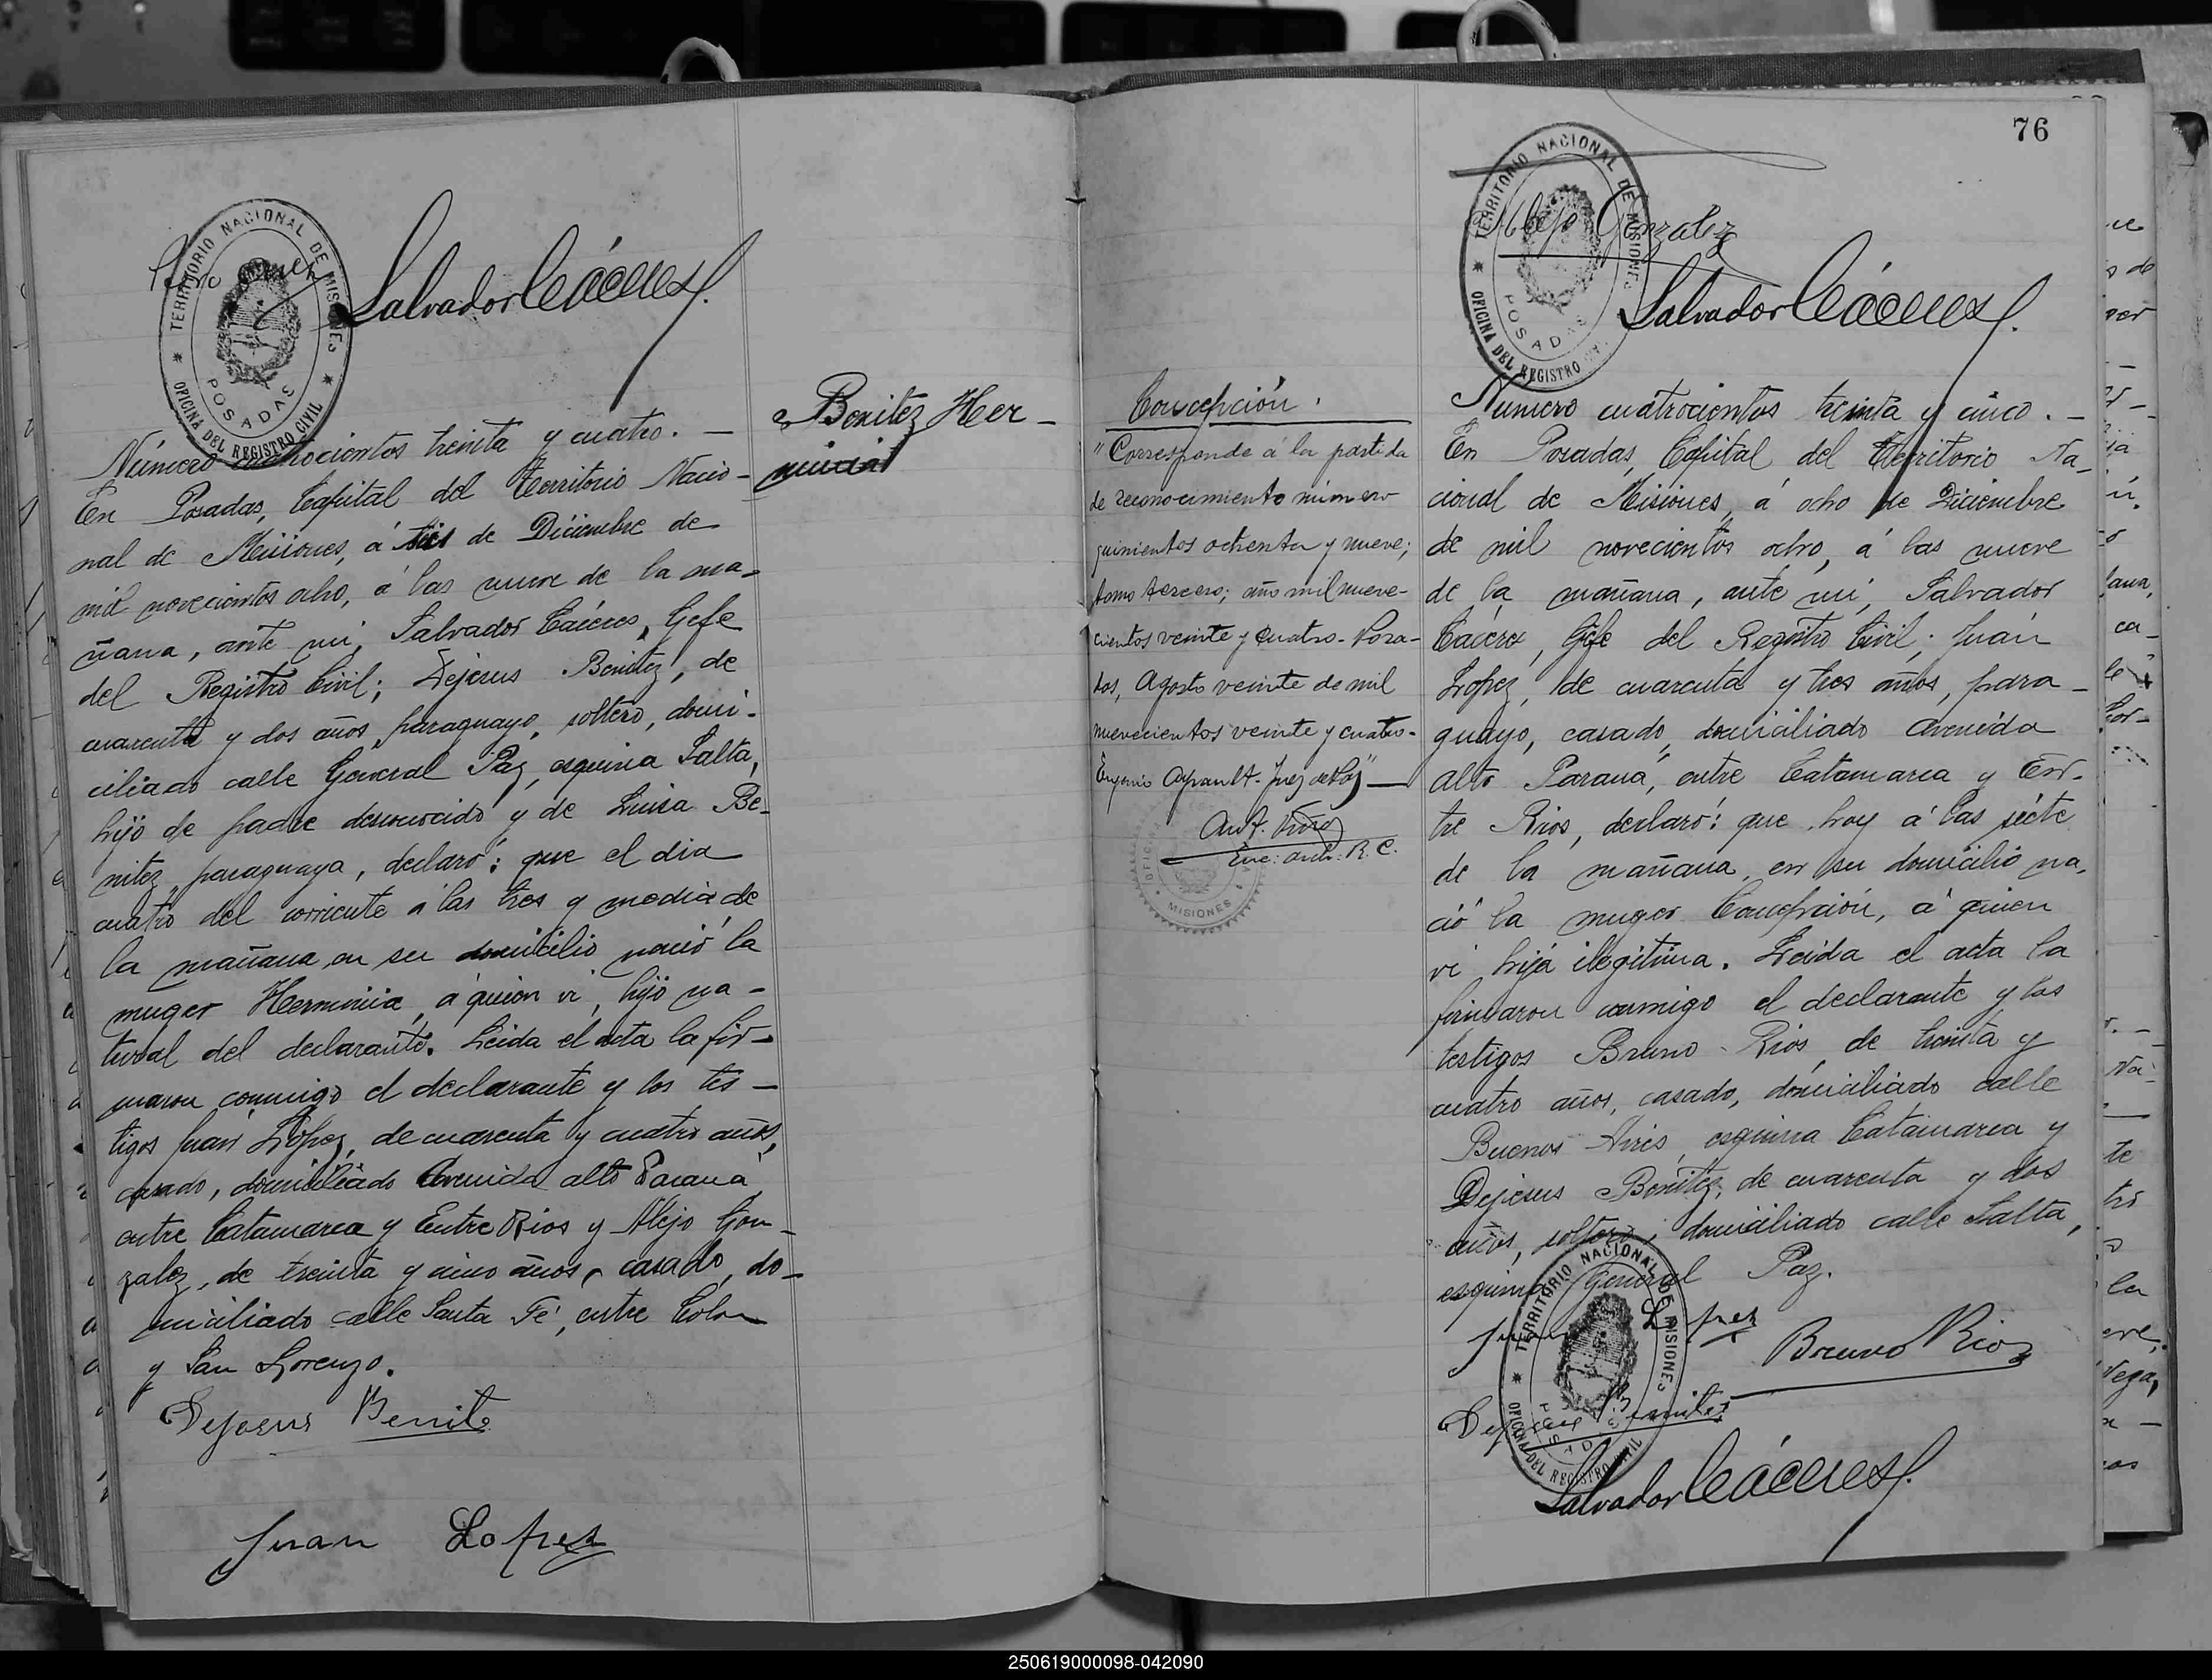 TERRITORIO NACIONAL DE MISIONES
POSADAS
OFICINA DEL REGISTRO CIVIL
Salvador Cáceres
Benitez Her-
minia
Número cuatrocientos treinta y cuatro. —
En Posadas, Capital del Territorio Nacio-
nal de Misiones, á seis de Diciembre de
mil novecientos ocho, á las nueve de la ma-
ñana, ante mi, Salvador Cáceres, Gefe
del Registro Civil; Dejesus Benitez, de
cuarenta y dos años, paraguayo, soltero, domi-
ciliado calle General Paz, esquina Salta,
hijo de padre desconocido y de Luisa Be-
nitez, paraguaya, declaró: que el dia
cuatro del corriente á las tres y media de
la mañana, en su domicilio nació la
muger Herminia, á quien vi, hijo na-
tural del declarante. Leida el acta la fir-
maron conmigo el declarante y los tes-
tigos Juan López, de cuarenta y cuatro años,
casado, domiciliado Avenida alto Paraná
entre Catamarca y Entre Rios y Alejo Gon-
zalez, de treinta y cinco años, casado, do-
miciliado calle Santa Fé, entre Colon
y San Lorenzo.
Dejesus Benite
Juan Lopez
76
TERRITORIO NACIONAL DE MISIONES
POSADAS
OFICINA DEL REGISTRO
Alejo Gonzalez
Salvador Cáceres
Concepción.
"Corresponde á la partida
de reconocimiento número
quinientos ochenta y nueve;
tomo tercero; año mil nueve-
cientos veinte y cuatro. Posa-
das, Agosto veinte de mil
nuevecientos veinte y cuatro.
Eugenio Ayrault. Juez de Paz" —
Enc: arch: R. C.
MISIONES
Número cuatrocientos treinta y cinco. —
En Posadas, Capital del Territorio Na-
cional de Misiones, á ocho de Diciembre
de mil novecientos ocho, á las nueve
de la mañana, ante mi, Salvador
Cáceres, Gefe del Registro Civil; Juan
Lopez, de cuarenta y tres años, para-
guayo, casado, domiciliado Avenida
Alto Paraná, entre Catamarca y En-
tre Rios, declaró: que hoy á las siete
de la mañana, en su domicilio na-
ció la muger Concepción, á quien
vi, hija ilegitima. Leida el acta la
firmaron conmigo el declarante y los
testigos Bruno Rios, de treinta y
cuatro años, casado, domiciliado calle
Buenos Aires, esquina Catamarca y
Dejesus Benitez, de cuarenta y dos
años, soltero, domiciliado calle Salta,
esquina General Paz.
Juan Lopez
Bruno Rios
Dejesus Benitez
TERRITORIO NACIONAL DE MISIONES
POSADAS
OFICINA DEL REGISTRO CIVIL
Salvador Cáceres
250619000098-042090